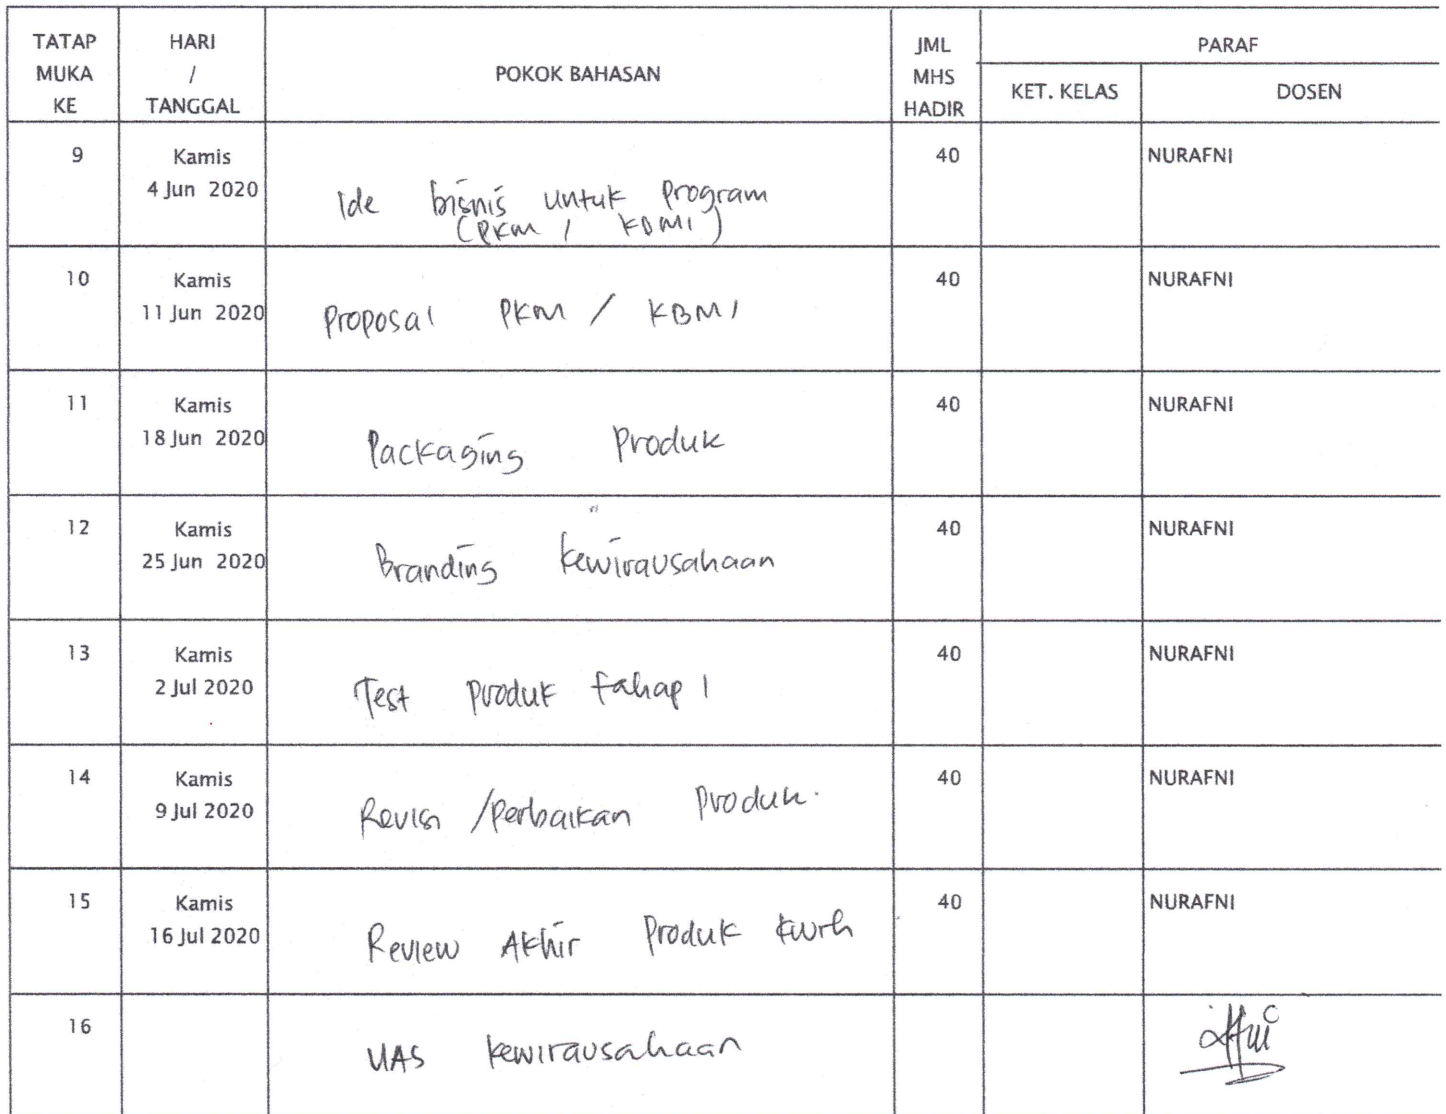 TATAP MUKA KE
HARI / TANGGAL
POKOK BAHASAN
JML MHS HADIR
PARAF
KET. KELAS
DOSEN
9
Kamis
4 Jun 2020
Ide bisnis untuk Program
(PKM / KBMI)
40
NURAFNI
10
Kamis
11 Jun 2020
Proposal PKM / KBMI
40
NURAFNI
11
Kamis
18 Jun 2020
Packaging Produk
40
NURAFNI
12
Kamis
25 Jun 2020
Branding kewirausahaan
40
NURAFNI
13
Kamis
2 Jul 2020
Test produk tahap 1
40
NURAFNI
14
Kamis
9 Jul 2020
Revisi /Perbaikan Produk.
40
NURAFNI
15
Kamis
16 Jul 2020
Review Akhir Produk kwrh
40
NURAFNI
16
UAS kewirausahaan